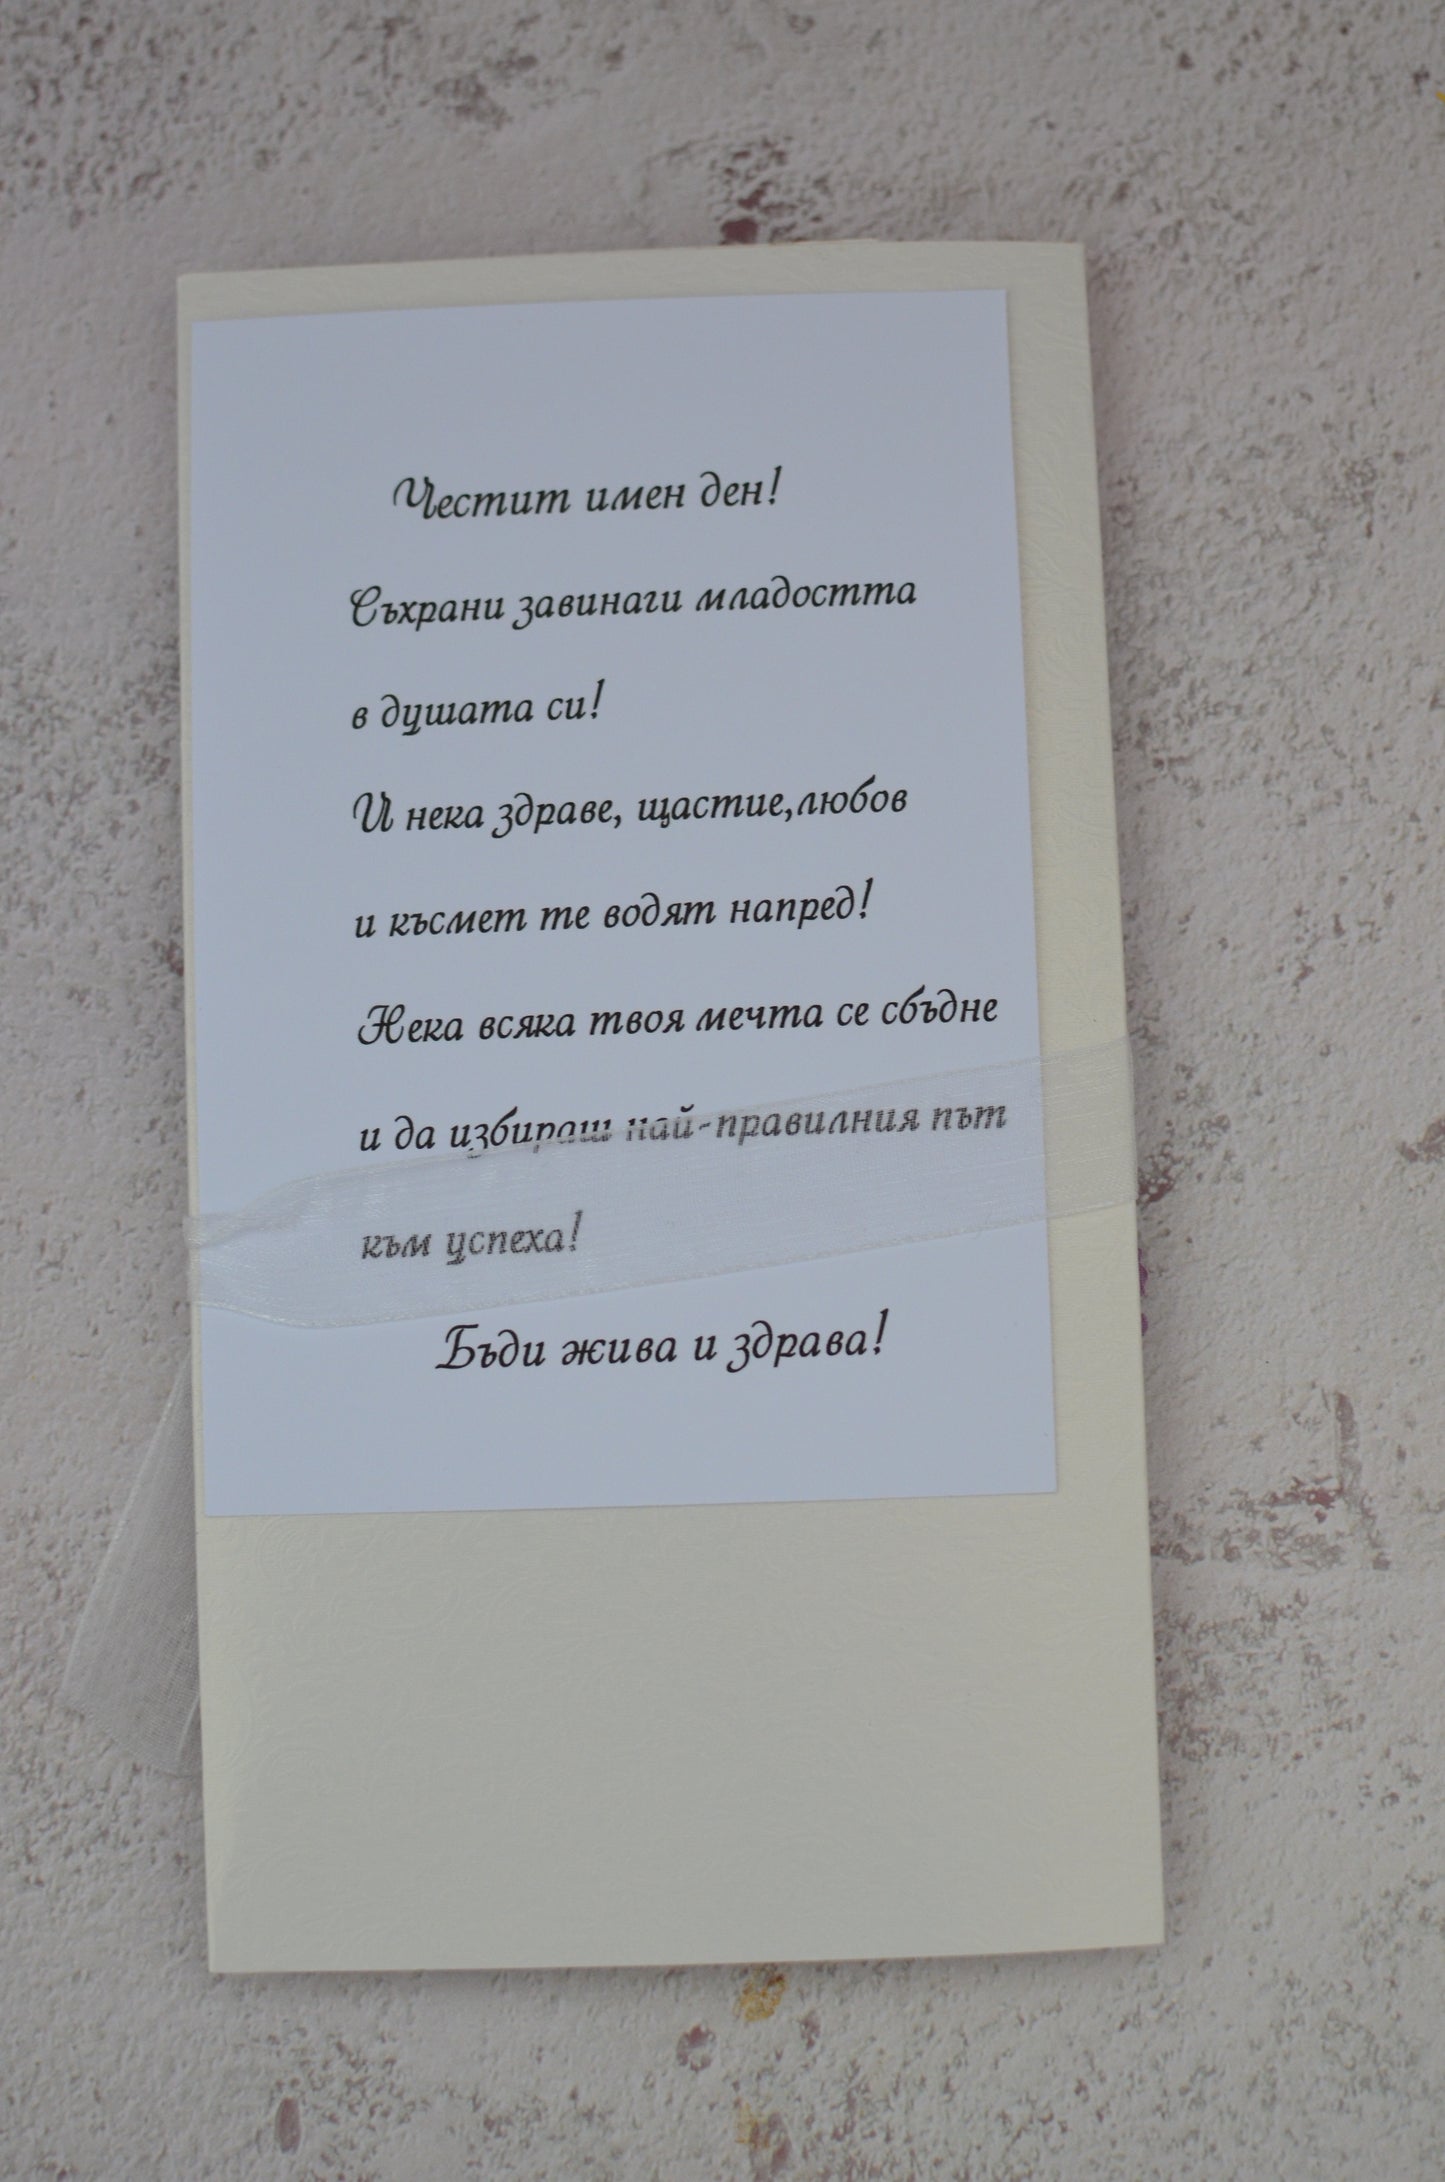 Честит имен ден!
Съхрани завинаги младостта
в душата си!
И нека здраве, щастие,любов
и късмет те водят напред!
Нека всяка твоя мечта се сбъдне
и да избираш най-правилния път
към успеха!
Бъди жива и здрава!